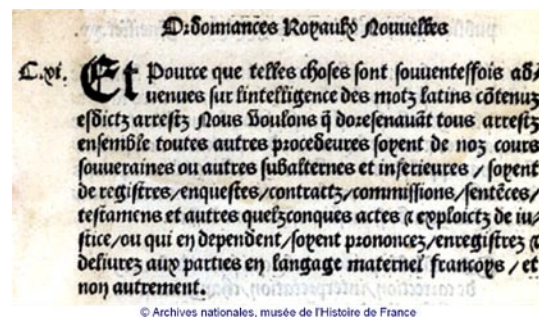 Ordonnances Royaulx Nouuelles
C.xi. Et Pource que telles choses sont souuentesfois ad/
uenues sur lintelligence des motz latins cõtenuz
esdictz arrestz Nous voulons q̃ doresenauãt tous arrestz
ensemble toutes autres procedeures soyent de noz cours
souueraines ou autres subalternes et inferieures / soyent
de registres/enquestes/contractz/commissions/sentẽces/
testamens et autres quelzconques actes ⁊ exploictz de iu/
stice/ou qui en dependent/soyent prononcez/enregistrez ⁊
deliurez aux parties en langage maternel francoys / et
non autrement.
© Archives nationales, musée de l'Histoire de France